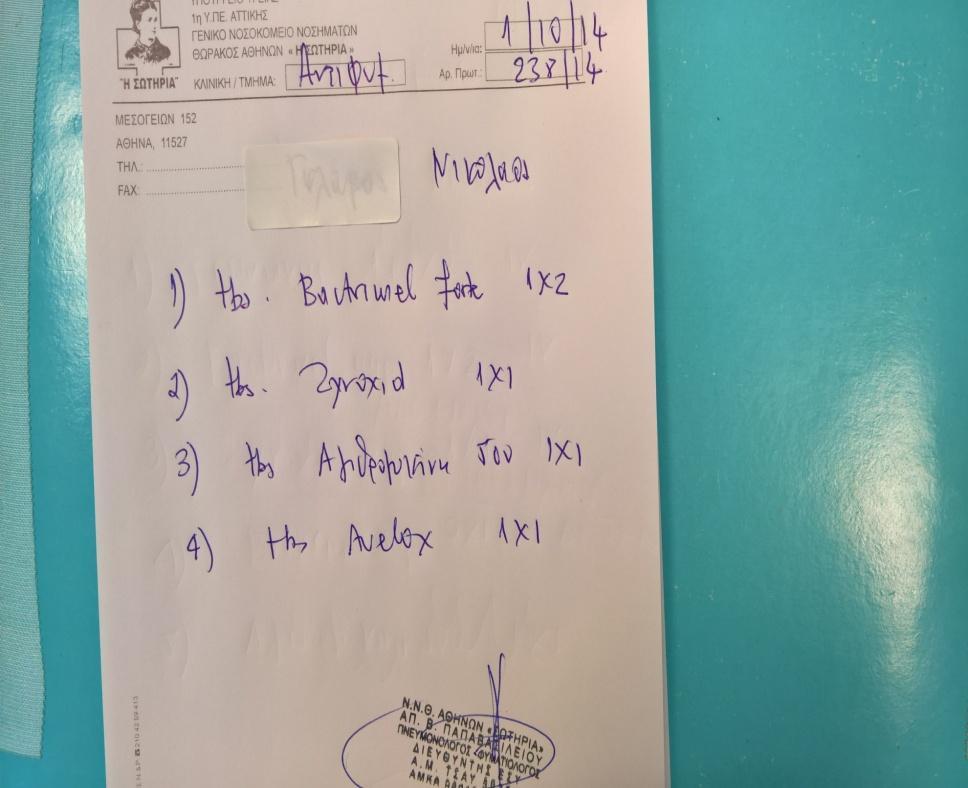 1η Υ.ΠΕ. ΑΤΤΙΚΗΣ
ΓΕΝΙΚΟ ΝΟΣΟΚΟΜΕΙΟ ΝΟΣΗΜΑΤΩΝ
ΘΩΡΑΚΟΣ ΑΘΗΝΩΝ «Η ΣΩΤΗΡΙΑ»
"Η ΣΩΤΗΡΙΑ"
ΚΛΙΝΙΚΗ / ΤΜΗΜΑ: Αντιφυμ.
Ημ/νία: 1/10/14
Αρ. Πρωτ.: 238/14
ΜΕΣΟΓΕΙΩΝ 152
ΑΘΗΝΑ, 11527
ΤΗΛ.:
FAX:
Νικόλαος
1) tbs. Bactrimel forte 1X2
2) tbs. Zyvoxid 1X1
3) tbs Αζιθρομυκίνη 500 1X1
4) tbs Avelox 1X1
Ν.Ν.Θ. ΑΘΗΝΩΝ «ΣΩΤΗΡΙΑ»
ΑΠ. Β. ΠΑΠΑΒΑΣΙΛΕΙΟΥ
ΠΝΕΥΜΟΝΟΛΟΓΟΣ ΦΥΜΑΤΙΟΛΟΓΟΣ
ΔΙΕΥΘΥΝΤΗΣ ΕΣΥ
Α.Μ. ΤΣΑΥ
ΑΜΚΑ